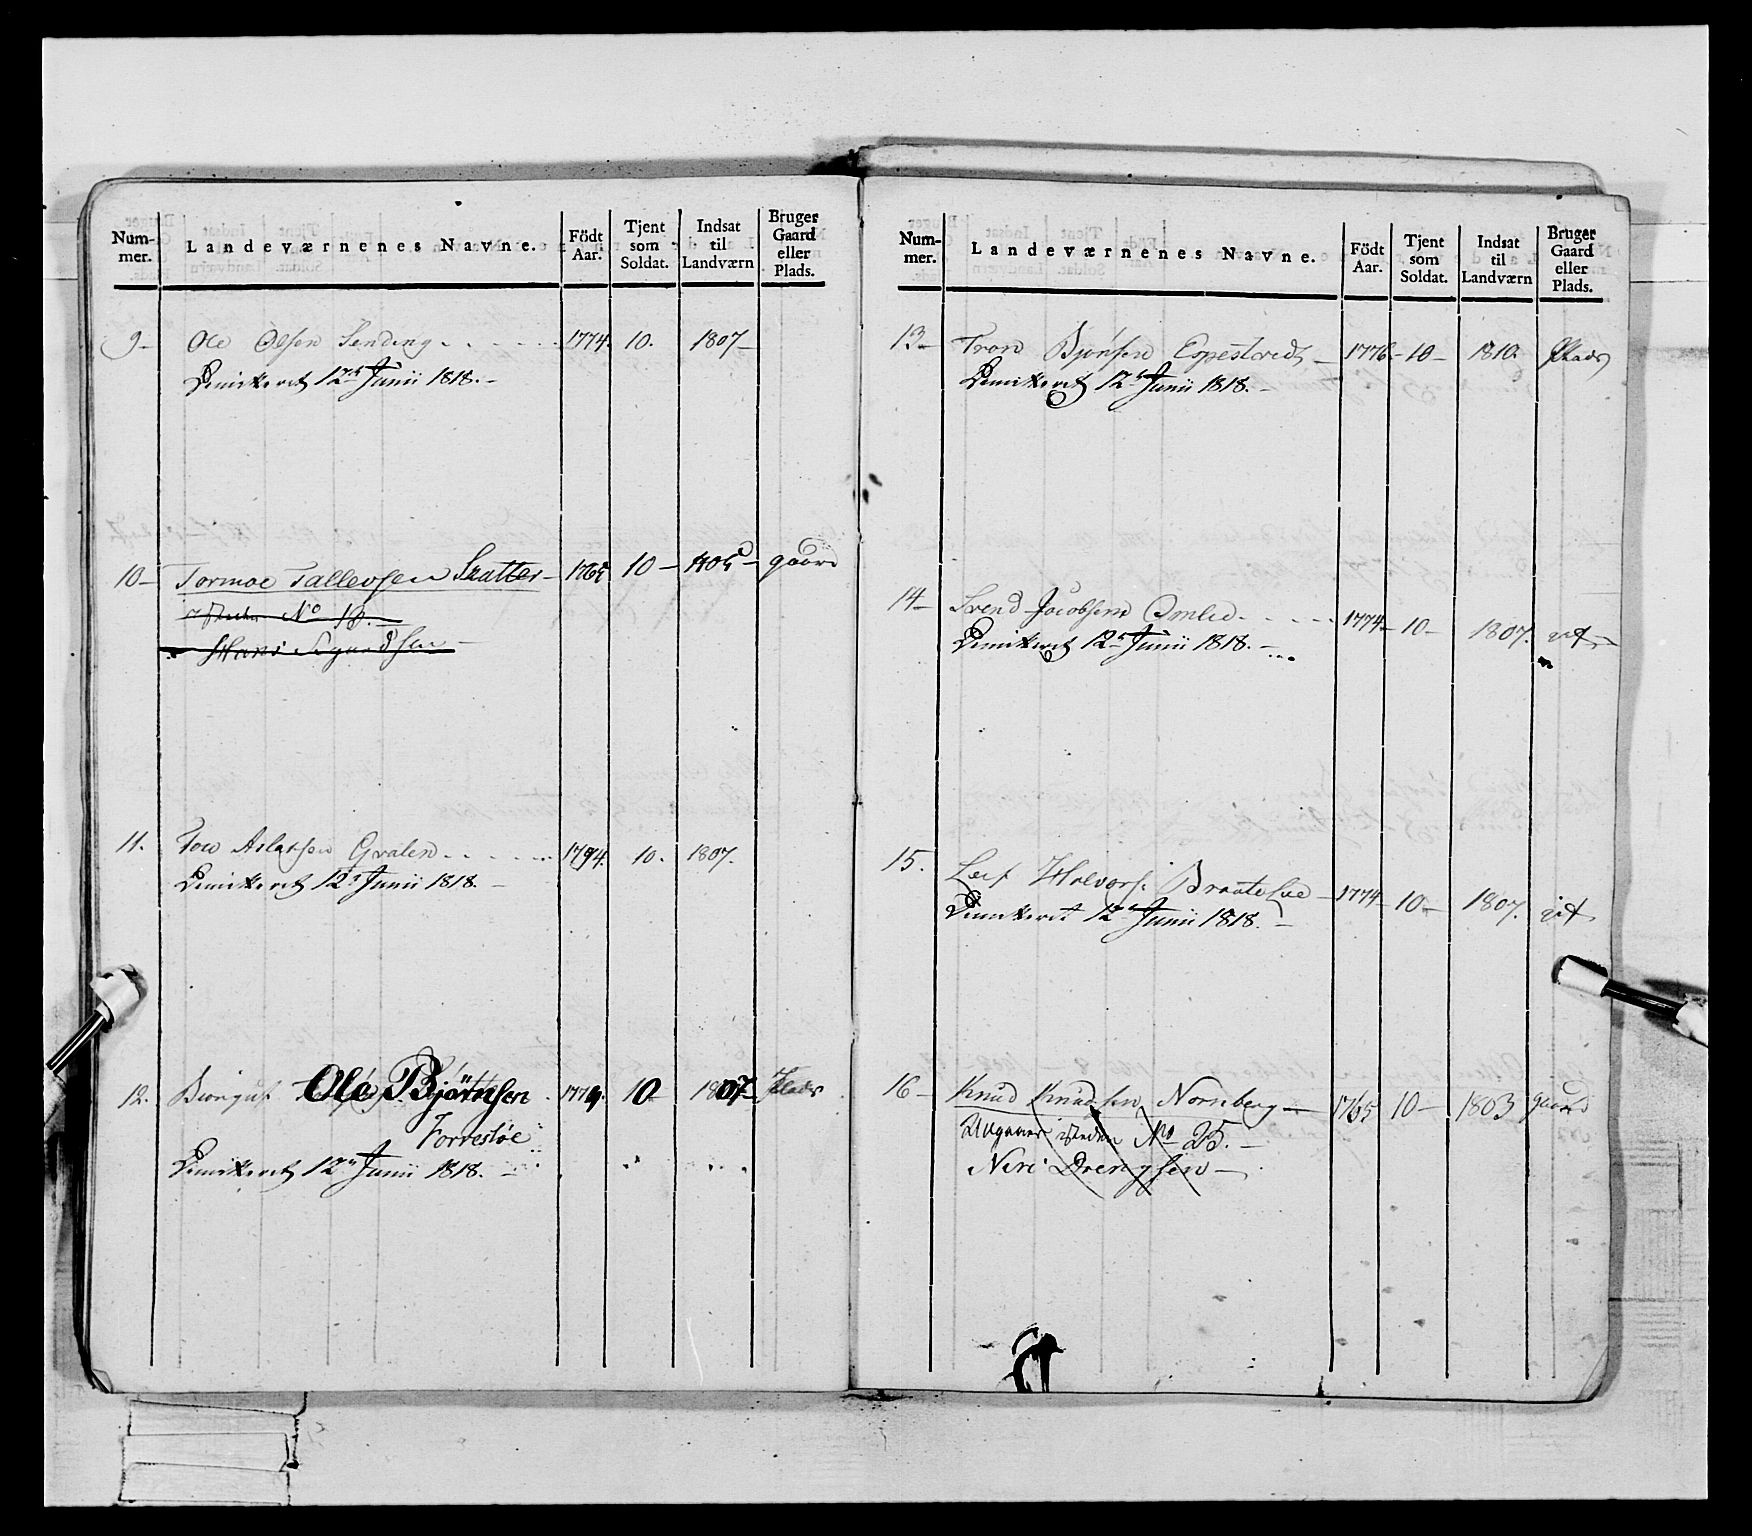 Num-
mer.
Landeværnenes Navne.
Födt
Aar.
Tjent
som
Soldat.
Indsat
til
Landværn
Bruger
Gaard
eller
Plads.
9 – Ole Olsen Sending . . . 1774. 10. 1807 –
Dimitteret 12te Junii 1818. –
10 – Tormoe Tallevsen Skatter – 1765 10 – 1805 – gaard
No 18. –
Hans Sigurdsen –
11. Tow Aslaksen Qvalen . . . 1774. 10. 1807.
Dimitteret 12te Junii 1818. –
12. Ole Björnsen 1774 10 1807 – Plads
Forresløe
Dimitteret 12te Junii 1818. –
Num-
mer.
Landeværnenes Navne.
Födt
Aar.
Tjent
som
Soldat.
Indsat
til
Landværn
Bruger
Gaard
eller
Plads.
13 – Tron Bjønsen Espestvedt – 1776 – 10 – 1810. Plads
Dimitteret 12te Junii 1818. –
14 – Svend Jacobsen Omlid . . . 1774 – 10 – 1807.
Dimitteret 12te Junii 1818. –
15. Leif Halvors. Braatelie – 1774 – 10 – 1807.
Dimitteret 12te Junii 1818. –
16 – Knud Knudsen Nornberg – 1765 10 – 1803 gaard
Afgaaer isteden No 25. –
Neri Drengsen –